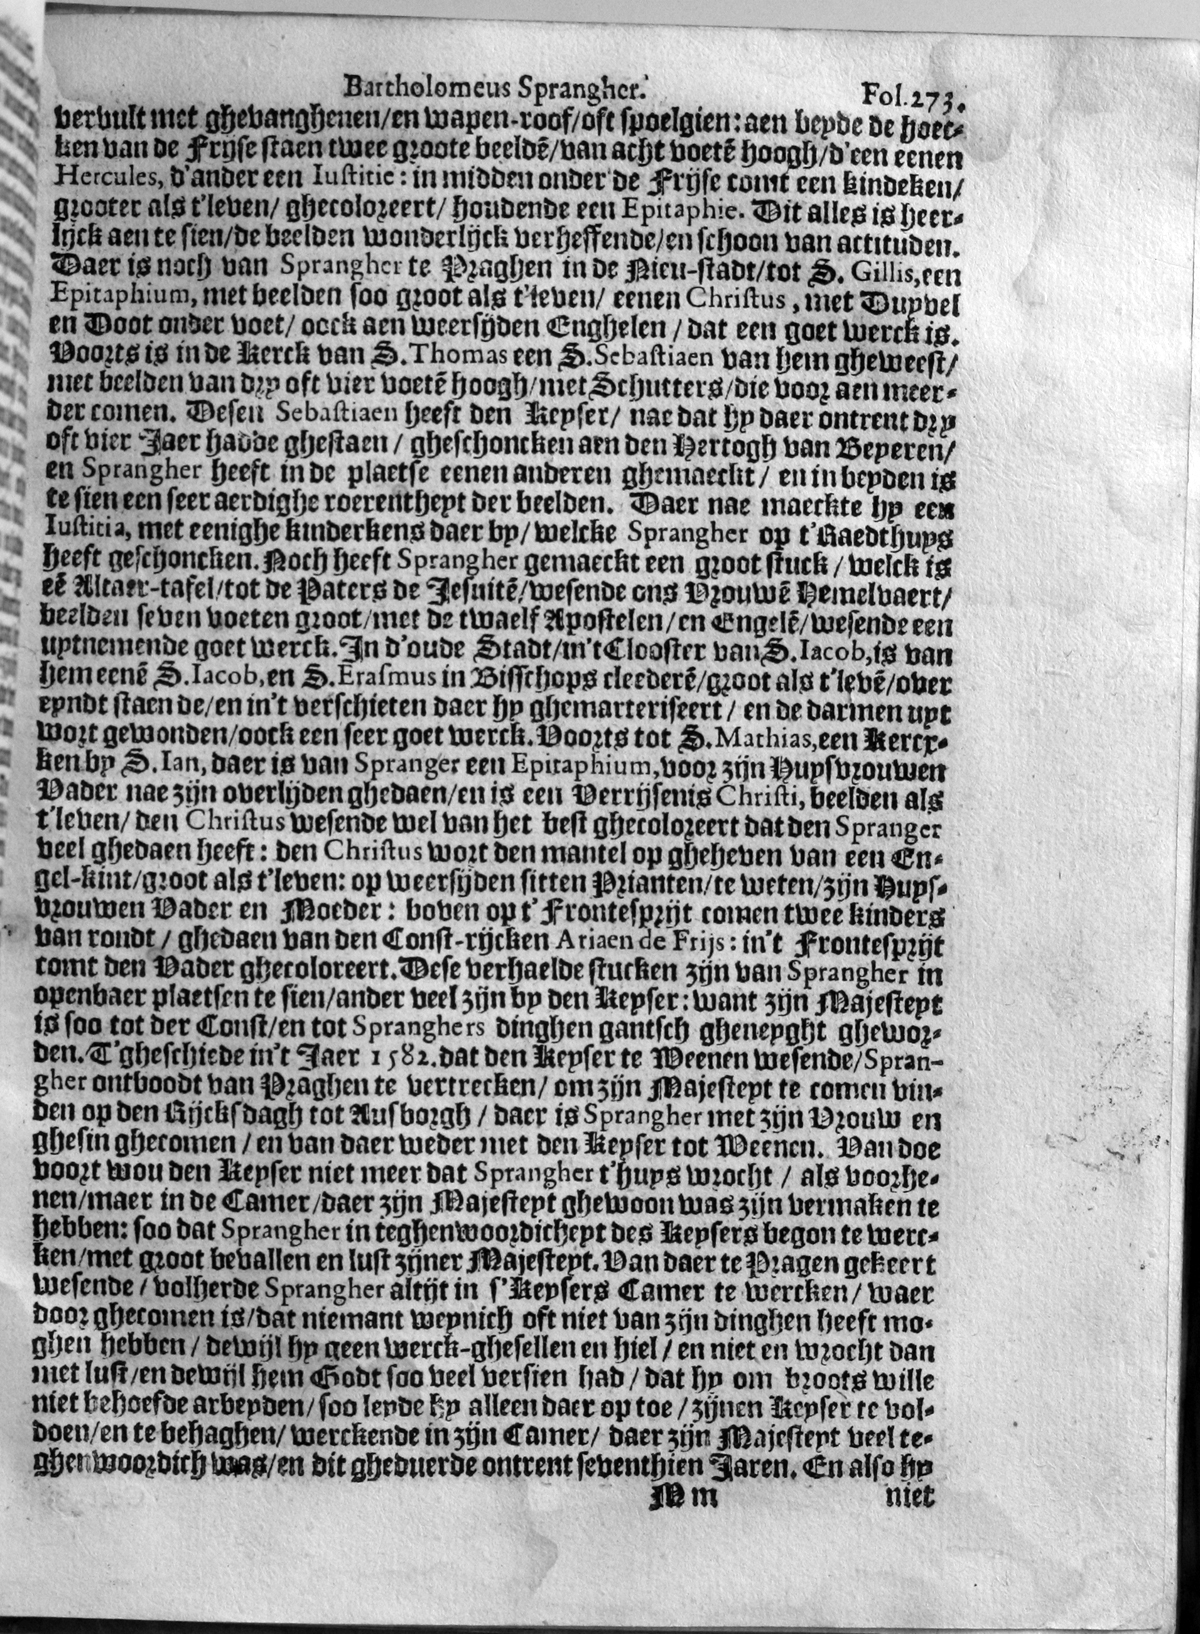 Bartholomeus Sprangher. Fol.273.
vervult met ghevanghenen/en wapen-roof/oft spoelgien: aen beyde de hoec-
ken van de Fryse staen twee groote beeldē/van acht voetē hoogh/d'een eenen
Hercules, d'ander een Iustitie: in midden onder de Fryse comt een kindeken/
grooter als t'leven/ ghecoloreert/ houdende een Epitaphie. Dit alles is heer-
lijck aen te sien/de beelden wonderlijck verheffende/en schoon van actituden.
Daer is noch van Sprangher te Praghen in de Nieu-stadt/tot S. Gillis,een
Epitaphium, met beelden soo groot als t'leven/ eenen Christus, met Duyvel
en Doot onder voet/ oock aen weersijden Enghelen / dat een goet werck is.
Voorts is in de Kerck van S.Thomas een S.Sebastiaen van hem gheweest/
met beelden van dry oft vier voetē hoogh/met Schutters/die voor aen meer-
der comen. Desen Sebastiaen heeft den Keyser/ nae dat hy daer ontrent dry
oft vier Jaer hadde ghestaen / gheschoncken aen den Hertogh van Beyeren/
en Sprangher heeft in de plaetse eenen anderen ghemaeckt / en in beyden is
te sien een seer aerdighe roerentheyt der beelden. Daer nae maeckte hy een
Iustitia, met eenighe kinderkens daer by/ welcke Sprangher op t'Raedthuys
heeft geschoncken. Noch heeft Sprangher gemaeckt een groot stuck / welck is
eē Altaer-tafel/tot de Paters de Jesuitē/wesende ons Vrouwē Hemelvaert/
beelden seven voeten groot/met de twaelf Apostelen/en Engelē/wesende een
uytnemende goet werck. In d'oude Stadt/in't Clooster van S.Iacob,is van
hem eenē S.Iacob,en S.Erasmus in Bisschops cleederē/groot als t'levē/over
eyndt staende/en in't verschieten daer hy ghemarteriseert / en de darmen uyt
wort gewonden/oock een seer goet werck. Voorts tot S.Mathias,een Kerck-
ken by S.Ian, daer is van Spranger een Epitaphium,voor zijn Huysvrouwen
Vader nae zijn overlijden ghedaen/en is een Verrijsenis Christi, beelden als
t'leven/ den Christus wesende wel van het best ghecoloreert dat den Spranger
veel ghedaen heeft: den Christus wort den mantel op gheheven van een En-
gel-kint/groot als t'leven: op weersijden sitten Prianten/te weten/zijn Huys-
vrouwen Vader en Moeder: boven op t'Frontespijt comen twee kinders
van rondt / ghedaen van den Const-rijcken Ariaen de Frijs: in't Frontesprijt
comt den Vader ghecoloreert. Dese verhaelde stucken zijn van Sprangher in
openbaer plaetsen te sien/ander veel zijn by den Keyser: want zijn Majesteyt
is soo tot der Const/en tot Spranghers dinghen gantsch gheneyght ghewor-
den. T'gheschiede in't Jaer 1582. dat den Keyser te Weenen wesende/Spran-
gher ontboodt van Praghen te vertrecken/ om zijn Majesteyt te comen vin-
den op den Rijcksdagh tot Ausborgh / daer is Sprangher met zijn Vrouw en
ghesin ghecomen / en van daer weder met den Keyser tot Weenen. Van doe
voort wou den Keyser niet meer dat Sprangher t'huys wrocht / als voorhe-
nen/maer in de Camer/daer zijn Majesteyt ghewoon was zijn vermaken te
hebben: soo dat Sprangher in teghenwoordicheyt des Keysers begon te werc-
ken/met groot bevallen en lust zijner Majesteyt. Van daer te Pragen gekeert
wesende / volherde Sprangher altijt in s'Keysers Camer te wercken/ waer
door ghecomen is/dat niemant weynich oft niet van zijn dinghen heeft mo-
ghen hebben / dewijl hy geen werck-ghesellen en hiel / en niet en wrocht dan
met lust/en dewijl hem Godt soo veel versien had / dat hy om broots wille
niet behoefde arbeyden/soo leyde hy alleen daer op toe / zijnen Keyser te vol-
doen/en te behaghen/ werckende in zijn Camer/ daer zijn Majesteyt veel te-
ghenwoordich was/en dit gheduerde ontrent seventhien Jaren. En also hy
M m niet